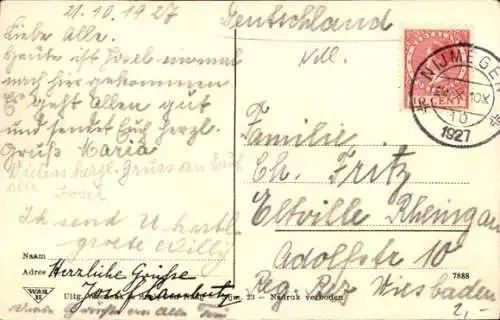 21.10.1927
Liebe Alle.
Heute ist Josef einmal
nach hier gekommen
Es geht Allen gut
und sendet Euch herzl.
Gruß Maria
Vielen herzl. Gruss an Euch
alle Josef
Ik send U hartl.
groete Willy
Naam
Adres Herzliche Grüsse
Josef
Uitg. 23 - Nadruk verboden
Viele Grüße von Allen
Deutschland
NEDERLAND
CENT
NIJMEGEN
10
1927
Familie
Ch. Fritz
Eltville Rheingau
Adolfstr 10
Reg. Bez Wiesbaden
7888
2,-